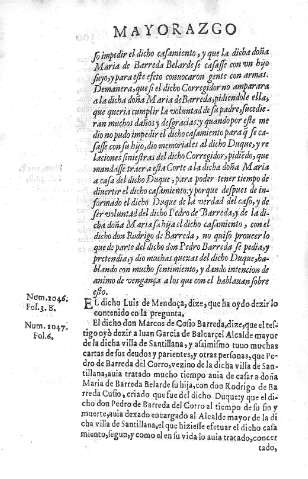 MAYORAZGO
so impedir el dicho casamiento, y que la dicha doña
Maria de Barreda Belarde se casasse con vn hijo
suyo, y para este efeto conuocaron gente con armas.
Demanera, que si el dicho Corregidor no amparara
a la dicha doña Maria de Barreda, pidiendole ella,
que queria cumplir la voluntad de su padre, sucedie-
ran muchos daños y desgracias; y quando por este me
dio no pudo impedir el dicho casamiento para q̃ se ca-
sasse con su hijo, dio memoriales al dicho Duque, y re
laciones siniestras del dicho Corregidor, pidiẽdo, que
mandasse traer a esta Corte a la dicha doña Maria
a casa del dicho Duque, para poder tener tiempo de
diuertir el dicho casamiento; y porque despues de in-
formado el dicho Duque de la verdad del caso, y de
ser voluntad del dicho Pedro de Barreda, y de la di-
cha doña Maria su hija el dicho casamiento, con el
dicho don Rodrigo de Barreda, no quiso proueer lo
que de parte del dicho don Pedro Barreda se pedia, y
pretendia, y dio muchas quexas del dicho Duque, ha-
blando con mucho sentimiento, y dando intencion de
animo de vengança a los que con el hablauan sobre
esto.
Num. 1046.
Fol. 3. B.
EL dicho Luis de Mendoça, dize, que ha oydo dezir lo
contenido en la pregunta.
Num. 1047.
Fol. 6.
El dicho don Marcos de Cosio Barreda, dize, que el tes-
tigo oyò dezir a Iuan Garcia de Balcarçel Alcalde mayor
de la dicha villa de Santillana, y assimismo tuuo muchas
cartas de sus deudos y parientes, y otras personas, que Pe-
dro de Barreda del Corro, vezino de la dicha villa de San-
tillana, auia tratado mucho tiempo auia de casar a doña
Maria de Barreda Belarde su hija, con don Rodrigo de Ba
rreda Cosio, criado que fue del dicho Duque; y que el di-
cho don Pedro de Barreda del Corro al tiempo de su fin y
muerte, auia dexado encargado al Alcalde mayor de la di
cha villa de Santillana, el que hiziesse efetuar el dicho casa
miento, segun, y como el en su vida lo auia tratado, concer
tado,